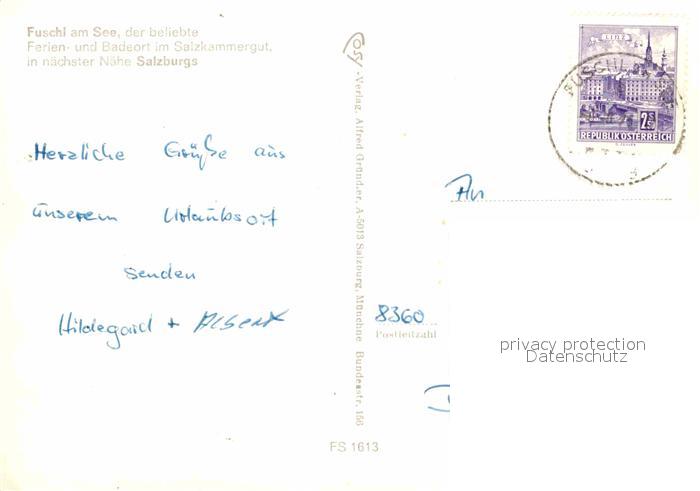 Fuschl am See, der beliebte
Ferien- und Badeort im Salzkammergut,
in nächster Nähe Salzburgs
Herzliche Grüße aus
unserem Urlaubsort
senden
Hildegard + Albert
-Verlag, Alfred Gründler, A-5013 Salzburg, Münchne Bundesstr. 156
LINZ
2S
REPUBLIK ÖSTERREICH
FUSCHL
An
8360
Postleitzahl
privacy protection
Datenschutz
FS 1613